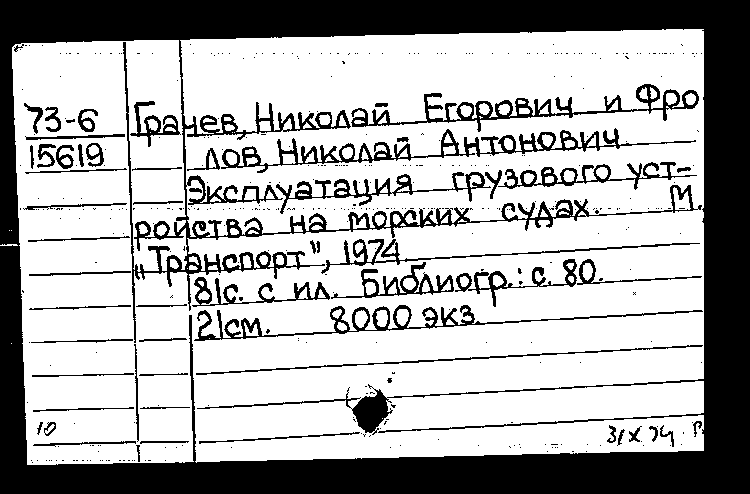 73-6 Грачев, Николай Егорович и Фро
15619 лов, Николай Антонович.
Эксплуатация грузового уст-
ройства на морских судах. М.
„Транспорт", 1974.
81с. с ил. Библиогр.: с. 80.
21см. 8000 экз.
10
31X 74